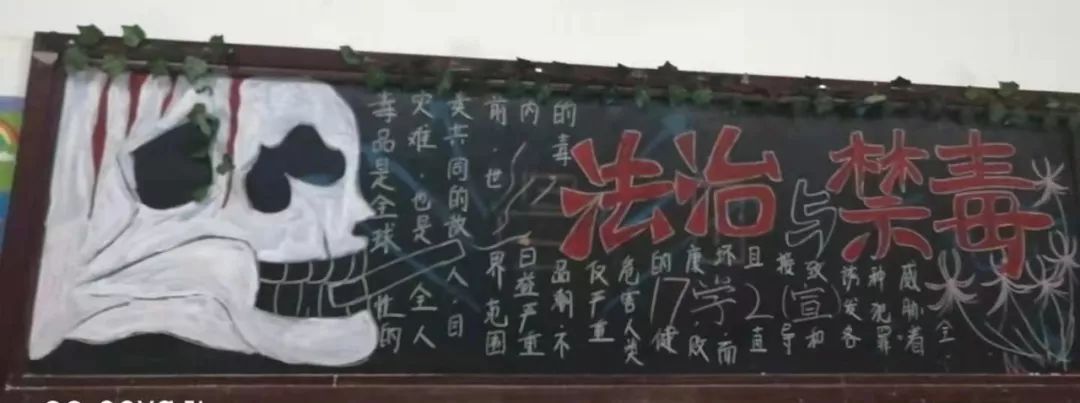 法治与禁毒
毒品是全球性的
灾难·也是全人
类共同的敌人·目
前·世界范围
内日益严重
的毒品潮·不
仅严重
危害人类
的健
康·败
坏·而
且直
接导
致和
诱发各
种犯罪·
威胁着
全
17学2(宣)